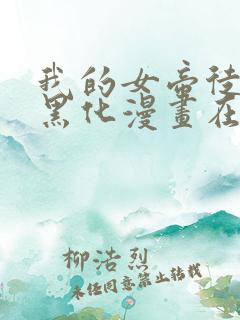 我的女帝徒
黑化漫畫在
柳浩烈
未经同意禁止转载